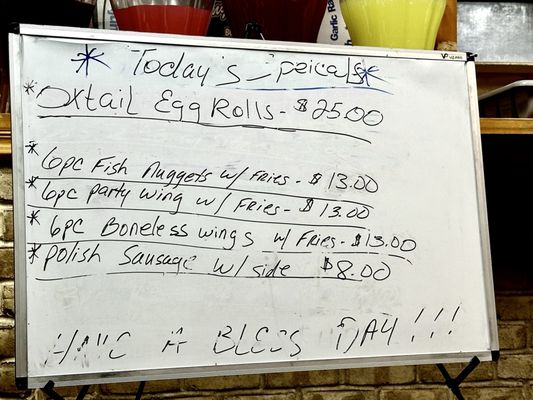 Garlic Ra
* Today's Speicals *
* Oxtail Egg Rolls - $25.00
* 6pc Fish Nuggets w/ Fries - $13.00
* 6pc party wing w/ Fries - $13.00
* 6pc Boneless wings w/ Fries - $13.00
* polish Sausage w/ side $8.00
HAVE A BLESS DAY!!!